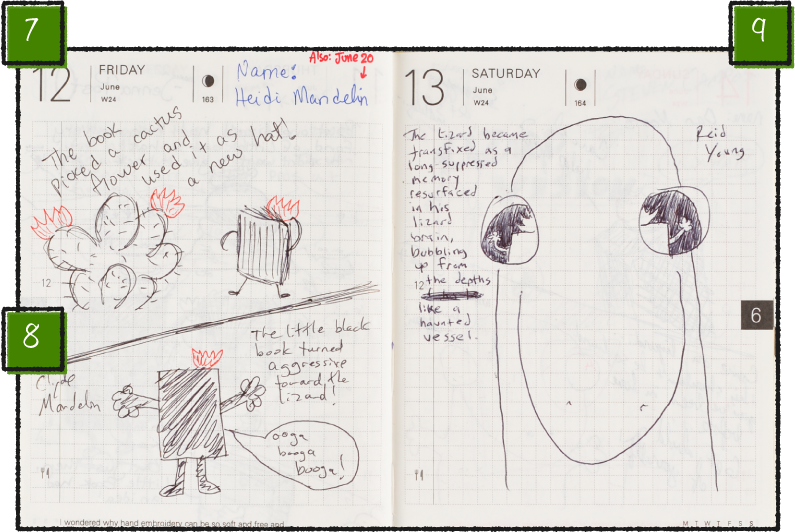 7
12
FRIDAY
June
W24
163
Also: June 20
Name:
Heidi Mandelin
The book
picked a cactus
flower and
used it as
a new hat!
12
8
The little black
book turned
aggressive
toward the
lizard!
Clyde
Mandelin
ooga
booga
booga!
I wondered why hand embroidery can be so soft and free and
9
13
SATURDAY
June
W24
164
The lizard became
transfixed as a
long-suppressed
memory
resurfaced
in his
lizard
brain,
bubbling
up from
12 the depths
like a
haunted
vessel.
Reid
Young
6
M T W T F S S